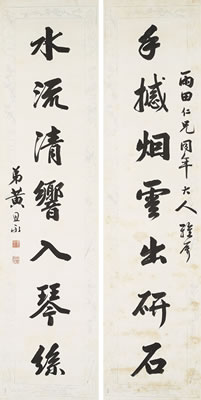 雨田仁兄同年大人雅属
手撼烟雲出研石
水流清響入琴絲
弟黃思永